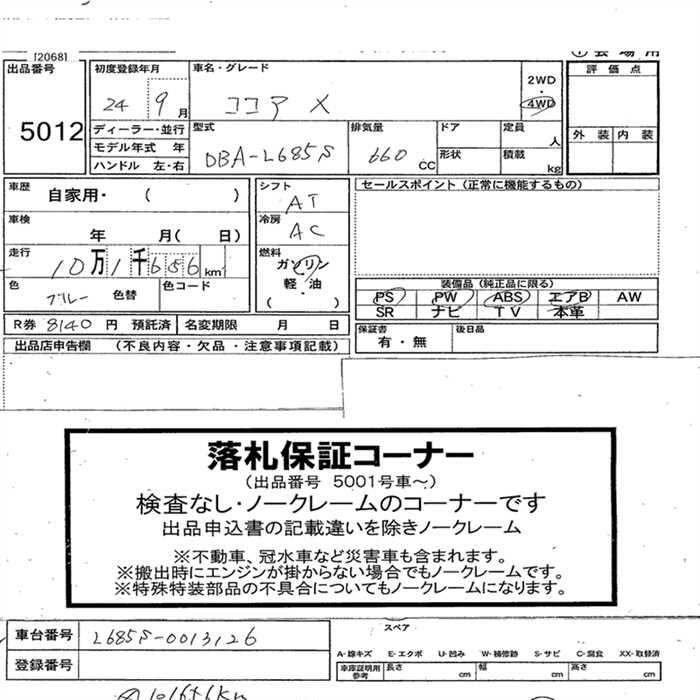 [2068]
出品番号 初度登録年月 車名・グレード 2WD 評価点
24 9月 ココア X ・ 4WD
5012 ディーラー・並行 型式 排気量 ドア 定員 人 外装 内装
モデル年式 年 DBA-L685S 660 CC 形状 積載 kg
ハンドル 左・右
車歴 自家用・( ) シフト AT セールスポイント (正常に機能するもの)
車検 年 月( 日) 冷房 AC
走行 10万1千656km 燃料 ガソリン
軽・油
( ・ )
色 ブルー 色替 色コード 装備品 (純正品に限る)
PS PW ABS エアB AW
SR ナビ TV 本革
R券 8140 円 預託済 名変期限 月 日 保証書 有・無 後日品
出品店申告欄 (不良内容・欠品・注意事項記載)
落札保証コーナー
(出品番号 5001号車~)
検査なし・ノークレームのコーナーです
出品申込書の記載違いを除きノークレーム
※不動車、冠水車など災害車も含まれます。
※搬出時にエンジンが掛からない場合でもノークレームです。
※特殊特装部品の不具合についてもノークレームになります。
車台番号 L685S-0013126 スペア
登録番号 A-線キズ E-エクボ U-凹み W-補修跡 S-サビ C-腐食 XX-取替済
車庫証明用参考 長さ cm 幅 cm 高さ cm
101656km